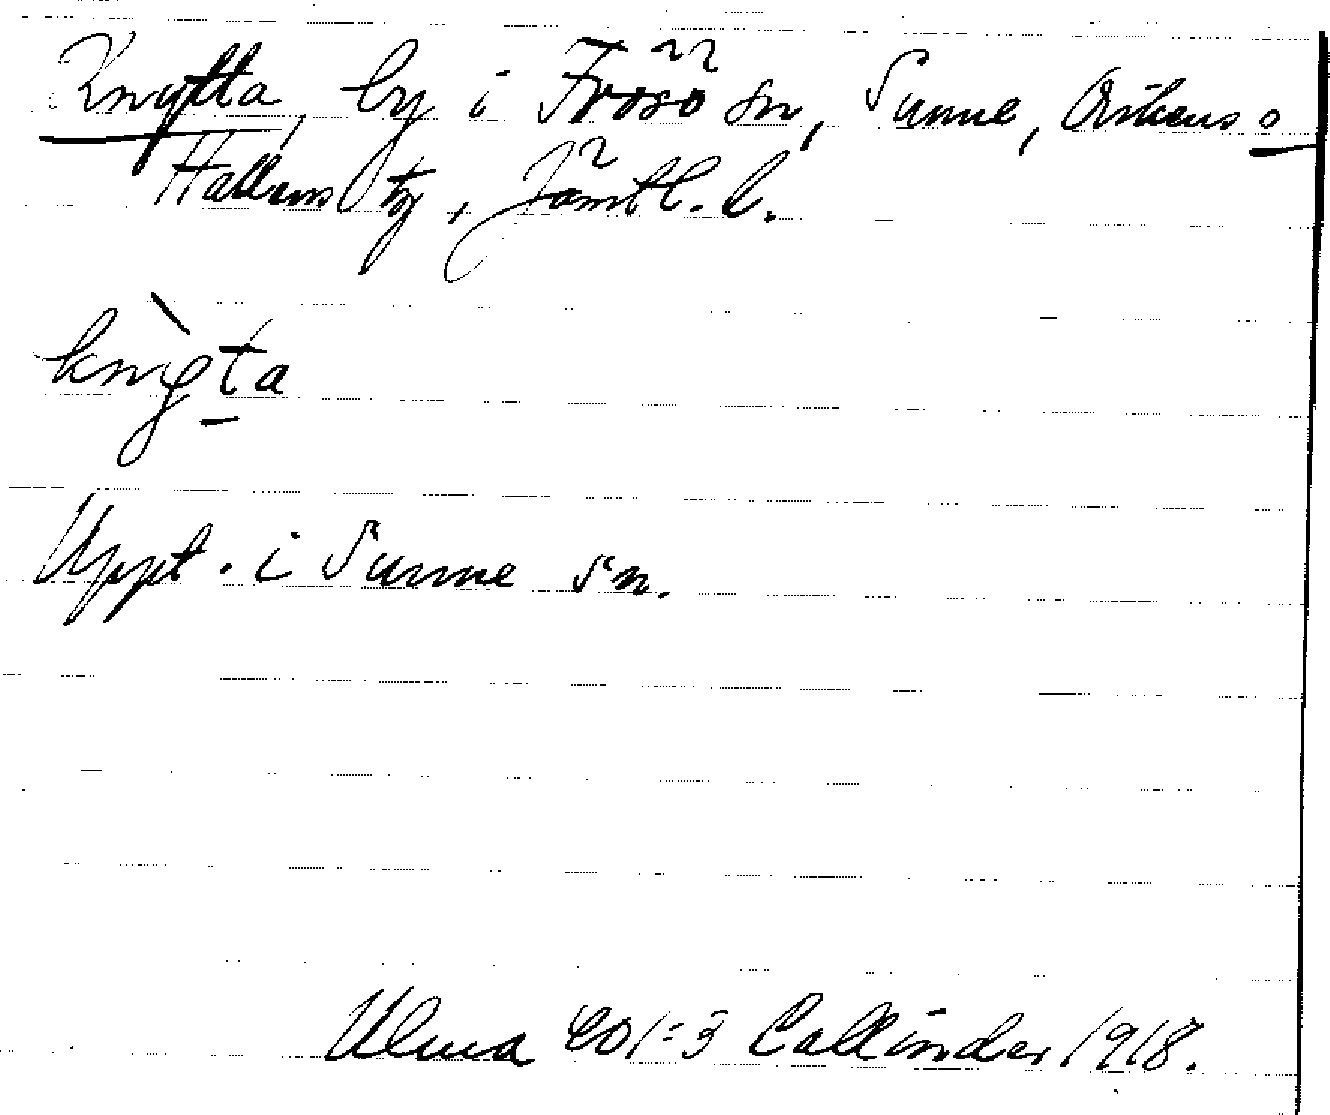 Knytta, by i Frösö sn, Sunne, o
Hallens tg, Jämtl. l.
knyta
Uppt. i Sunne sn.
Ulma 401:3 Callinder 1918.